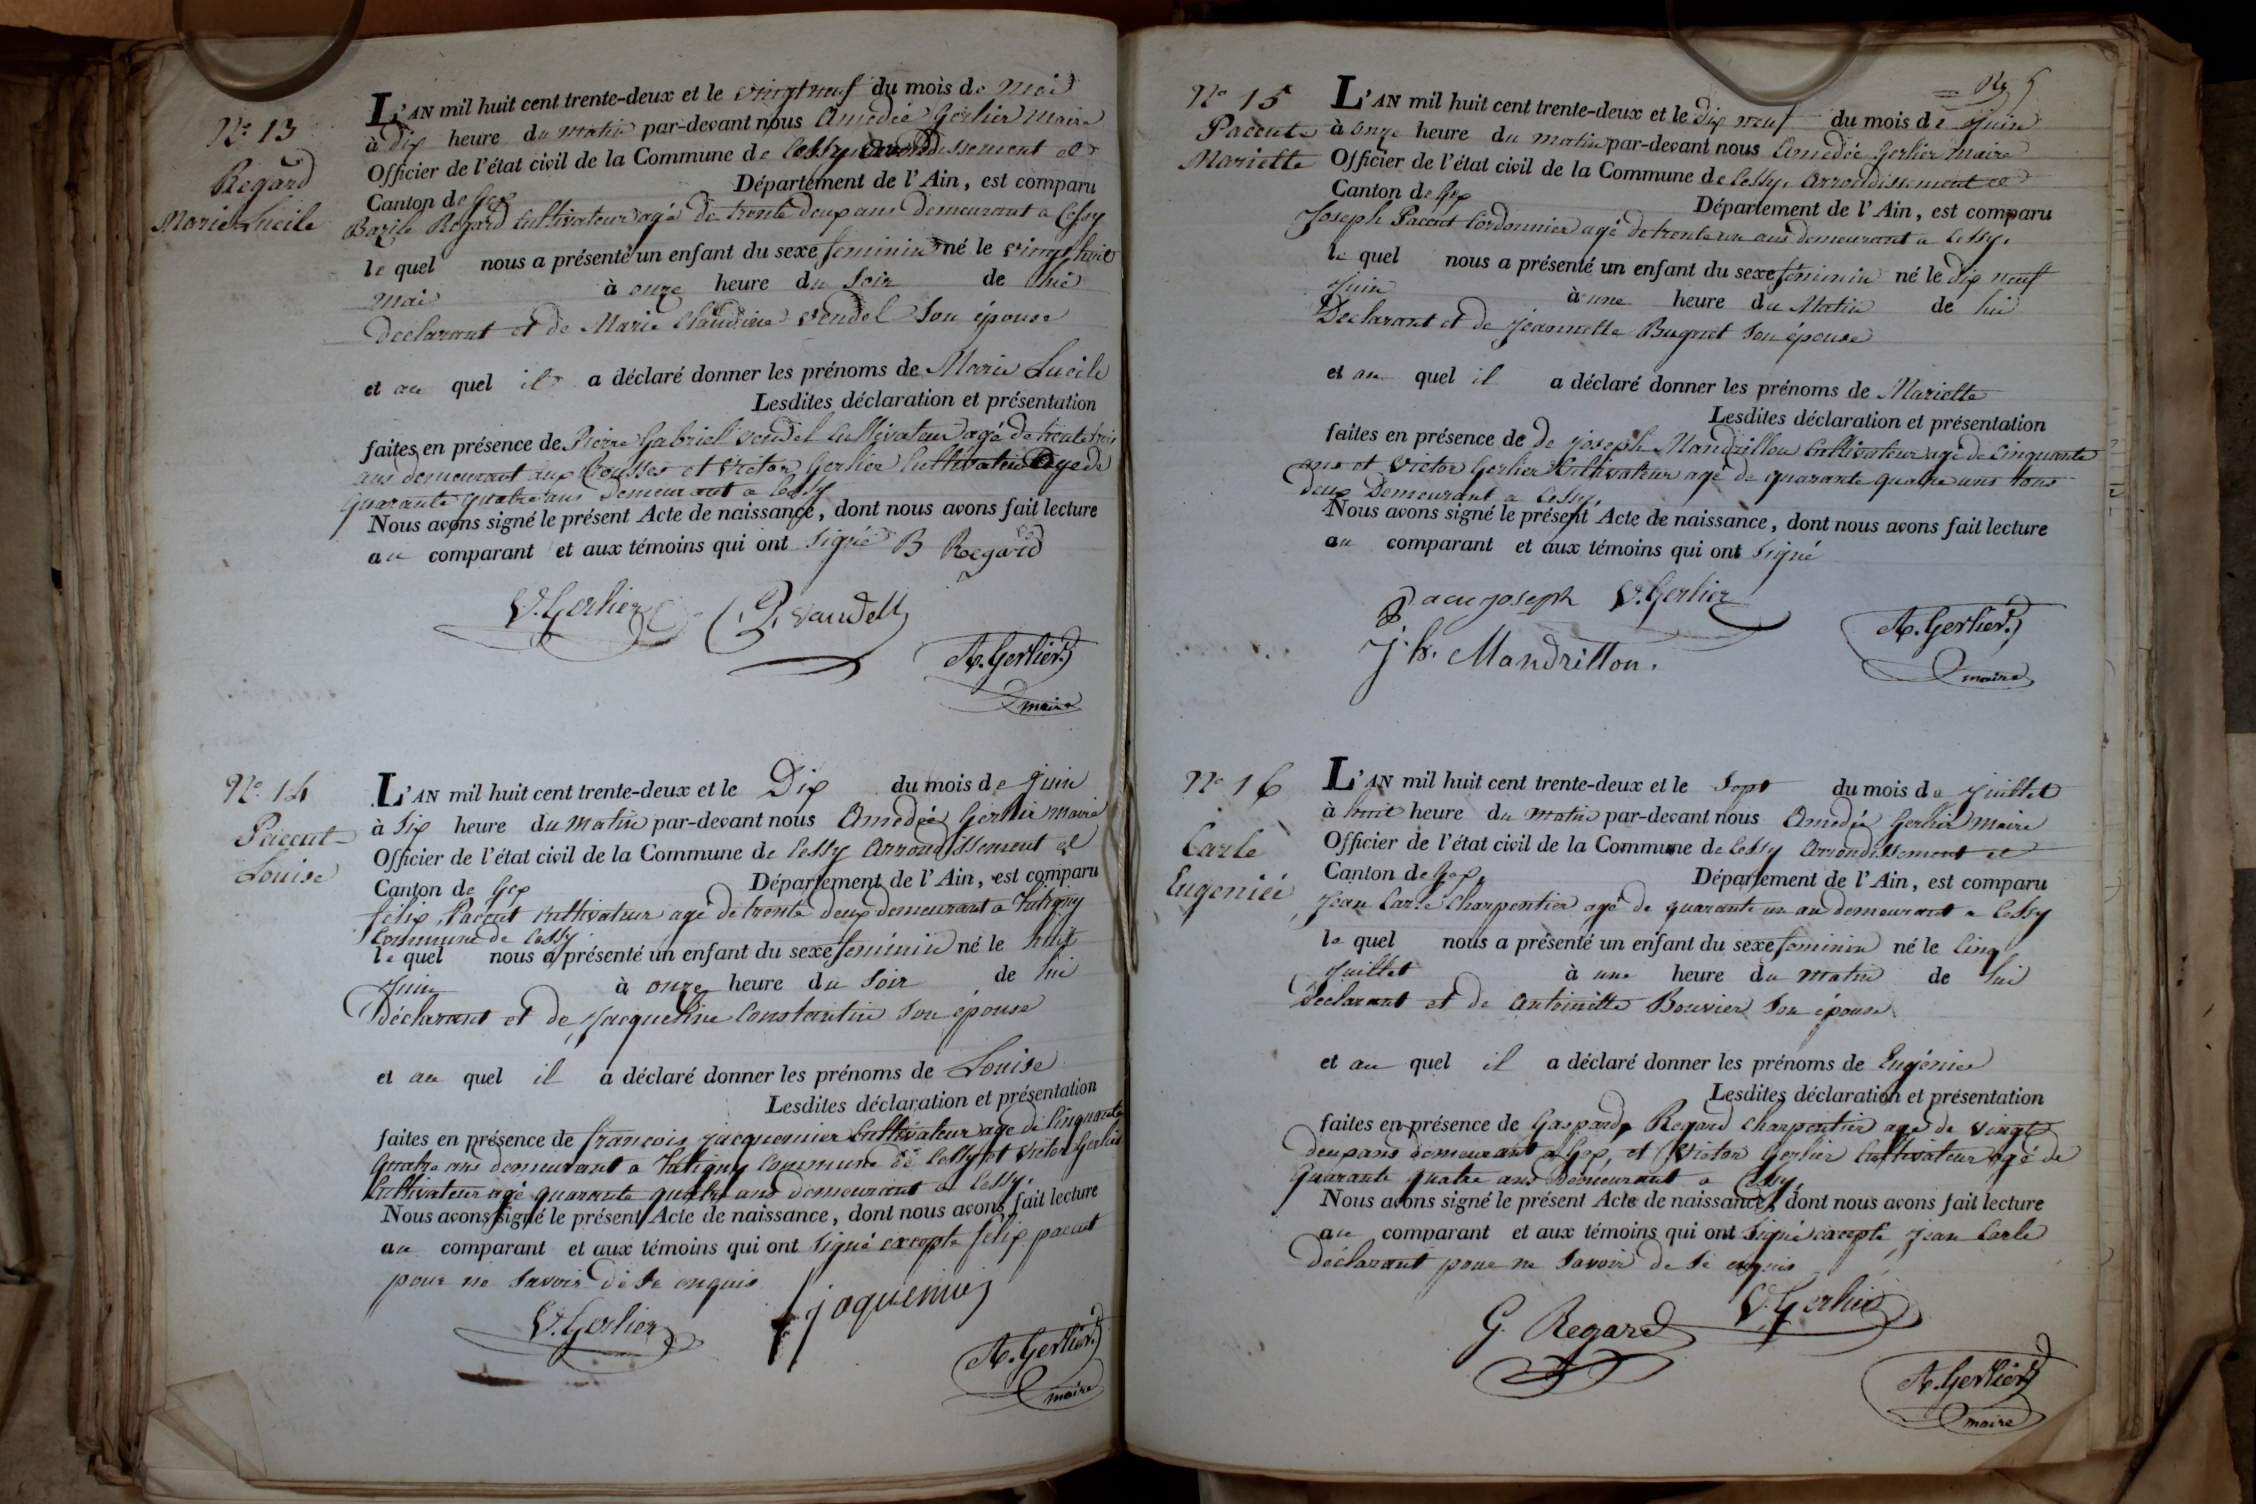 N.o 13
Regard
Marie Lucile
L'AN mil huit cent trente-deux et le vingt neuf du mois de Mai
à Dix heure du matin par-devant nous Amedée Gerlier Maire
Officier de l'état civil de la Commune de Cessy arrondissement et
Canton de Gex Département de l'Ain, est comparu
Bazile Regard Cultivateur agé de trente deux ans demeurant a Cessy
le quel nous a présenté un enfant du sexe feminin né le vingt huit
Mai à onze heure du Soir de lui
declarant et de Marie Claudine Vendel Son épouse
et au quel il a déclaré donner les prénoms de Marie Lucile
Lesdites déclaration et présentation
faites en présence de Pierre Gabriel Vendel Cultivateur agé de trente trois
ans demeurant aux Cousses et Victor Gerlier Cultivateur agé de
quarante quatre ans Demeurant a Cessy
Nous avons signé le présent Acte de naissance, dont nous avons fait lecture
au comparant et aux témoins qui ont Signé B Regard
V. Gerlier P. Vandell
A. Gerlier
maire
N.o 14
Paccut
Louise
L'AN mil huit cent trente-deux et le Dix du mois de Juin
à Six heure du Matin par-devant nous Amedée Gerlier Maire
Officier de l'état civil de la Commune de Cessy Arrondissement et
Canton de Gex Département de l'Ain, est comparu
félix Paccut cultivateur agé de trente deux demeurant a Tutigny
Commune de Cessy
le quel nous a présenté un enfant du sexe feminin né le huit
Juin à onze heure du Soir de lui
déclarant et de Jacqueline Constantin Son épouse
et au quel il a déclaré donner les prénoms de Louise
Lesdites déclaration et présentation
faites en présence de francois jacquemier Cultivateur agé de Cinquante
quatre ans demeurant a Tutigny Commune de Cessy et Victor Gerlier
Cultivateur agé quarante quatre ans demeurant a Cessy.
Nous avons signé le présent Acte de naissance, dont nous avons fait lecture
au comparant et aux témoins qui ont Signé excepte félix paccut
pour ne Savoir de Se enquis
V. Gerlier f jaquemier
A. Gerlier
maire
5
N.o 15
Paccute
Mariette
L'AN mil huit cent trente-deux et le Dix neuf du mois de Juin
à onze heure du matin par-devant nous Amedée Gerlier Maire
Officier de l'état civil de la Commune de Cessy, Arrondissement et
Canton de Gex Département de l'Ain, est comparu
Joseph Paccut Cordonnier agé de trente un ans demeurant a Cessy,
le quel nous a présenté un enfant du sexe féminin né le Dix neuf
Juin à une heure du Matin de lui
Declarant et de Jeannette Buquet Son épouse
et au quel il a déclaré donner les prénoms de Mariette
Lesdites déclaration et présentation
faites en présence de de joseph Mandrillon Cultivateur agé de Cinquante
ans et Victor Gerlier Cultivateur agé de quarante quatre ans tous
deux Demeurant a Cessy.
Nous avons signé le présent Acte de naissance, dont nous avons fait lecture
au comparant et aux témoins qui ont Signé
Pacujoseph V. Gerlier
A. Gerlier
maire
J.h. Mandrillon.
N.o 16
Carle
Eugeniée
L'AN mil huit cent trente-deux et le Sept du mois de Juillet
à huit heure du matin par-devant nous Amedée Gerlier Maire
Officier de l'état civil de la Commune de Cessy Arrondissement et
Canton de Gex, Département de l'Ain, est comparu
Jean Carle Charpentier agé de quarante un an demeurant a Cessy
le quel nous a présenté un enfant du sexe feminin né le Cinq
Juillet à une heure du matin de lui
Declarant et de Antoinette Bouvier Son épouse
et au quel il a déclaré donner les prénoms de Eugénie
Lesdites déclaration et présentation
faites en présence de Gaspard Regard Charpentier agé de vingt
deux ans demeurant a Gex, et Victor Gerlier Cultivateur agé de
quarante quatre ans Demeurant a Cessy,
Nous avons signé le présent Acte de naissance, dont nous avons fait lecture
au comparant et aux témoins qui ont Signé excepté Jean Carle
déclarant pour ne Savoir de Se enquis
G. Regard V. Gerlier
A. Gerlier
maire